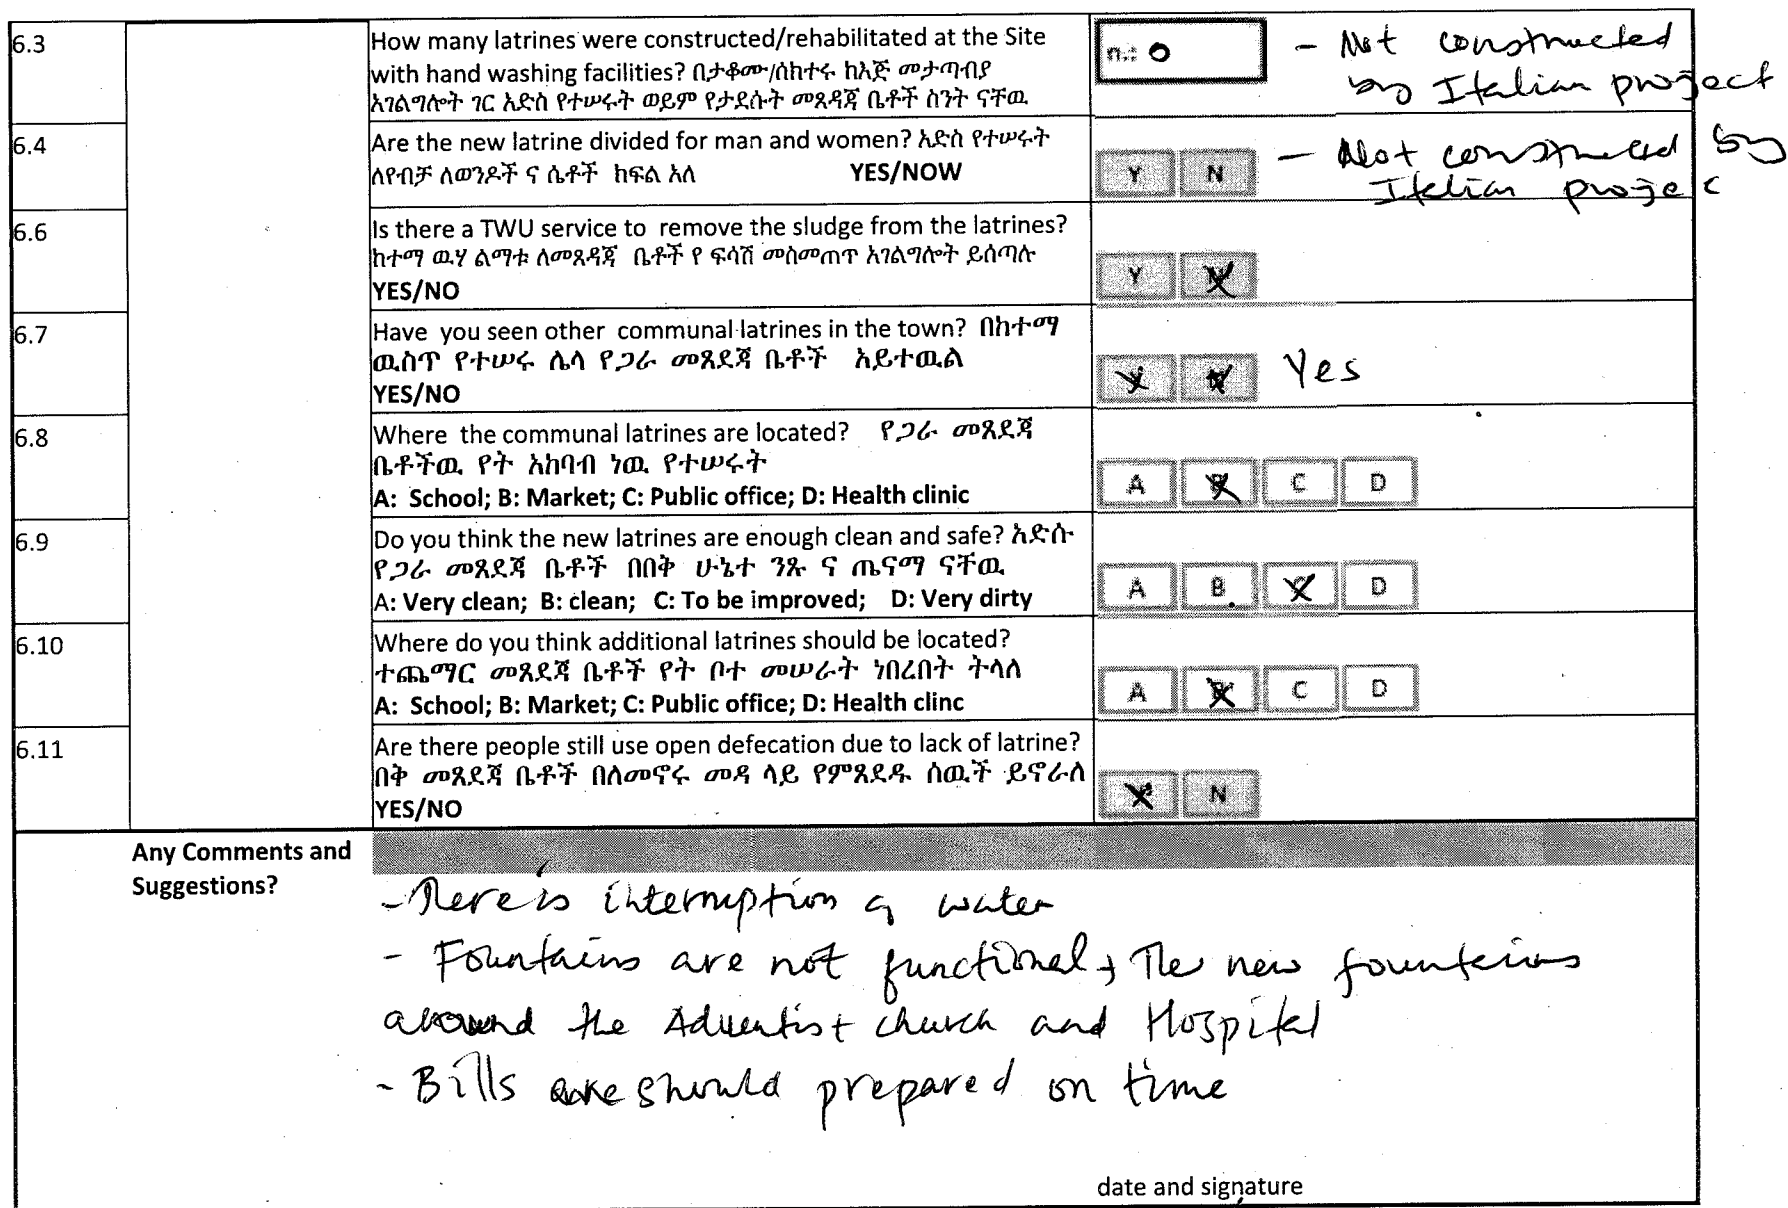 6.3
How many latrines were constructed/rehabilitated at the Site
with hand washing facilities? በታቆሙ/ሰከተሩ ከእጅ መታጣብያ
አገልግሎት ገር አድስ የተሠሩት ወይም የታደሱት መጸዳጃ ቤቶች ስንት ናቸዉ
n.: 0
- Not constructed
by Italian project
6.4
Are the new latrine divided for man and women? አድስ የተሠሩት
ለየብቻ ለወንዶች ና ሴቶች ክፍል አለ YES/NOW
Y N
- Not constructed by
Italian projec
6.6
Is there a TWU service to remove the sludge from the latrines?
ከተማ ዉሃ ልማቱ ለመጸዳጃ ቤቶች የ ፍሳሽ መስመጠጥ አገልግሎት ይሰጣሉ
YES/NO
Y N
6.7
Have you seen other communal latrines in the town? በከተማ
ዉስጥ የተሠሩ ሌላ የጋራ መጸደጃ ቤቶች አይተዉል
YES/NO
Y N Yes
6.8
Where the communal latrines are located? የጋራ መጸደጃ
ቤቶችዉ የት አከባብ ነዉ የተሠሩት
A: School; B: Market; C: Public office; D: Health clinic
A B C D
6.9
Do you think the new latrines are enough clean and safe? አድሱ
የጋራ መጸደጃ ቤቶች በበቅ ሁኔተ ንጹ ና ጤናማ ናቸዉ
A: Very clean; B: clean; C: To be improved; D: Very dirty
A B C D
6.10
Where do you think additional latrines should be located?
ተጨማር መጸደጃ ቤቶች የት ቦተ መሠራት ነበረበት ትላለ
A: School; B: Market; C: Public office; D: Health clinc
A B C D
6.11
Are there people still use open defecation due to lack of latrine?
በቅ መጸደጃ ቤቶች በለመኖሩ መዳ ላይ የምጸደዱ ሰዉች ይኖራለ
YES/NO
Y N
Any Comments and
Suggestions?
- There is interruption of water
- Fountains are not functional, The new fountains
around the Adventist church and Hospital
- Bills should prepared on time
date and signature